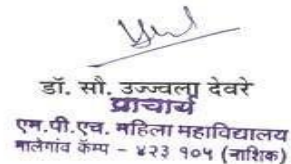 डॉ. सौ. उज्ज्वला देवरे
प्राचार्य
एम.पी.एच. महिला महाविद्यालय
मालेगांव कॅम्प - ४२३ १०५ (नाशिक)